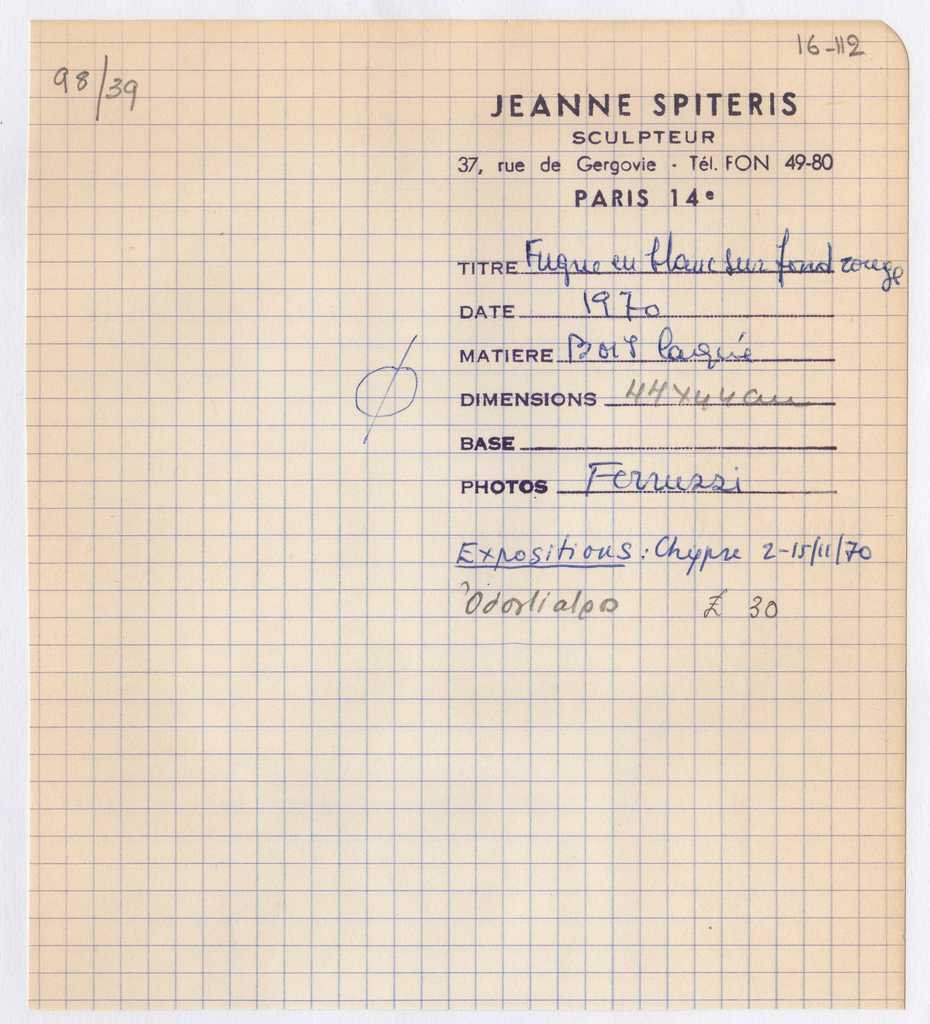 16-112
98/39
JEANNE SPITERIS
SCULPTEUR
37, rue de Gergovie - Tél. FON 49-80
PARIS 14e
TITRE Fugue en blanc sur fond rouge
DATE 1970
MATIERE Bois laqué
DIMENSIONS 44x44 cm
BASE
PHOTOS Ferruzzi
Φ
Expositions : Chypre 2-15/11/70
£ 30